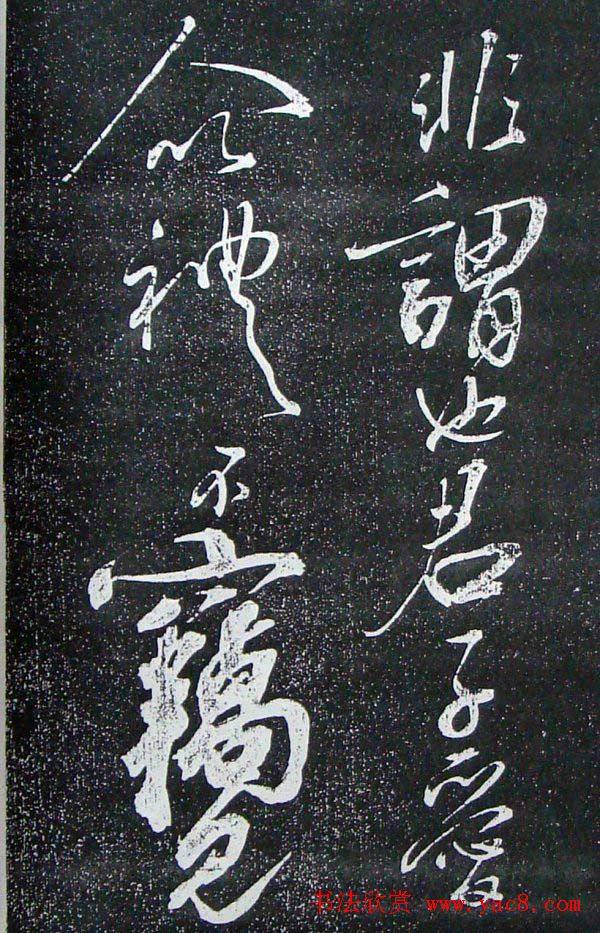 非謂也君子愛
人以禮不竊見
书法欣赏 www.yac8.com